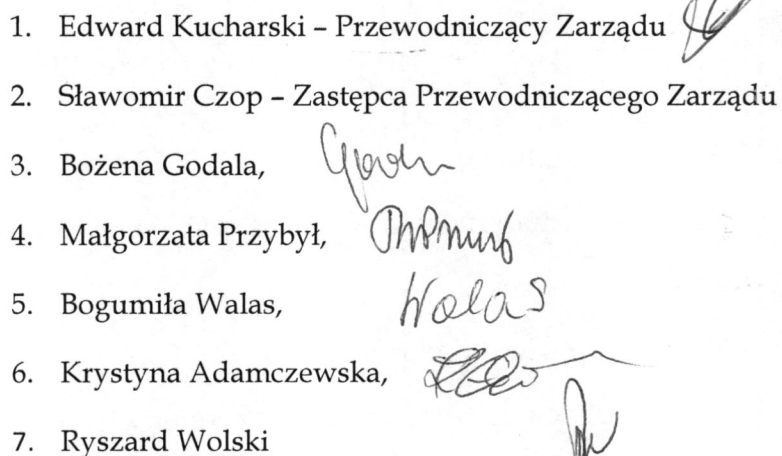 1. Edward Kucharski – Przewodniczący Zarządu
2. Sławomir Czop – Zastępca Przewodniczącego Zarządu
3. Bożena Godala,
4. Małgorzata Przybył,
5. Bogumiła Walas, Walas
6. Krystyna Adamczewska,
7. Ryszard Wolski